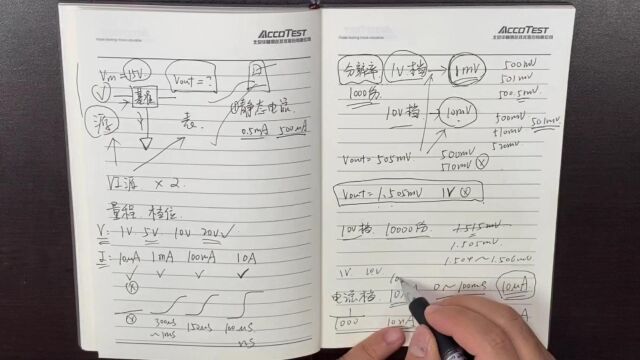 ACCOTEST
Vin = 15V
Vout = ?
V
基准
源
表
①静态电流
0.5mA 500mA
VI源 × 2
量程 档位
V: 1V 5V 10V 20V
I: 10μA 1mA 100mA 10A
300μs
~1ms
150μs
100μs
ns
ACCOTEST
分辨率 1V档 → 1mV
1000份
500mV
501mV
500.5mV
10V档 → 10mV
500mV
510mV
520mV
501mV
Vout = 505mV
500mV
510mV
Vout = 1.505mV 1V
10V档 10000份
1.515mV
1.505mV
1.504~1.506mV
1V 10V
电流档 0~100mS 10μA
1
1000
10nA